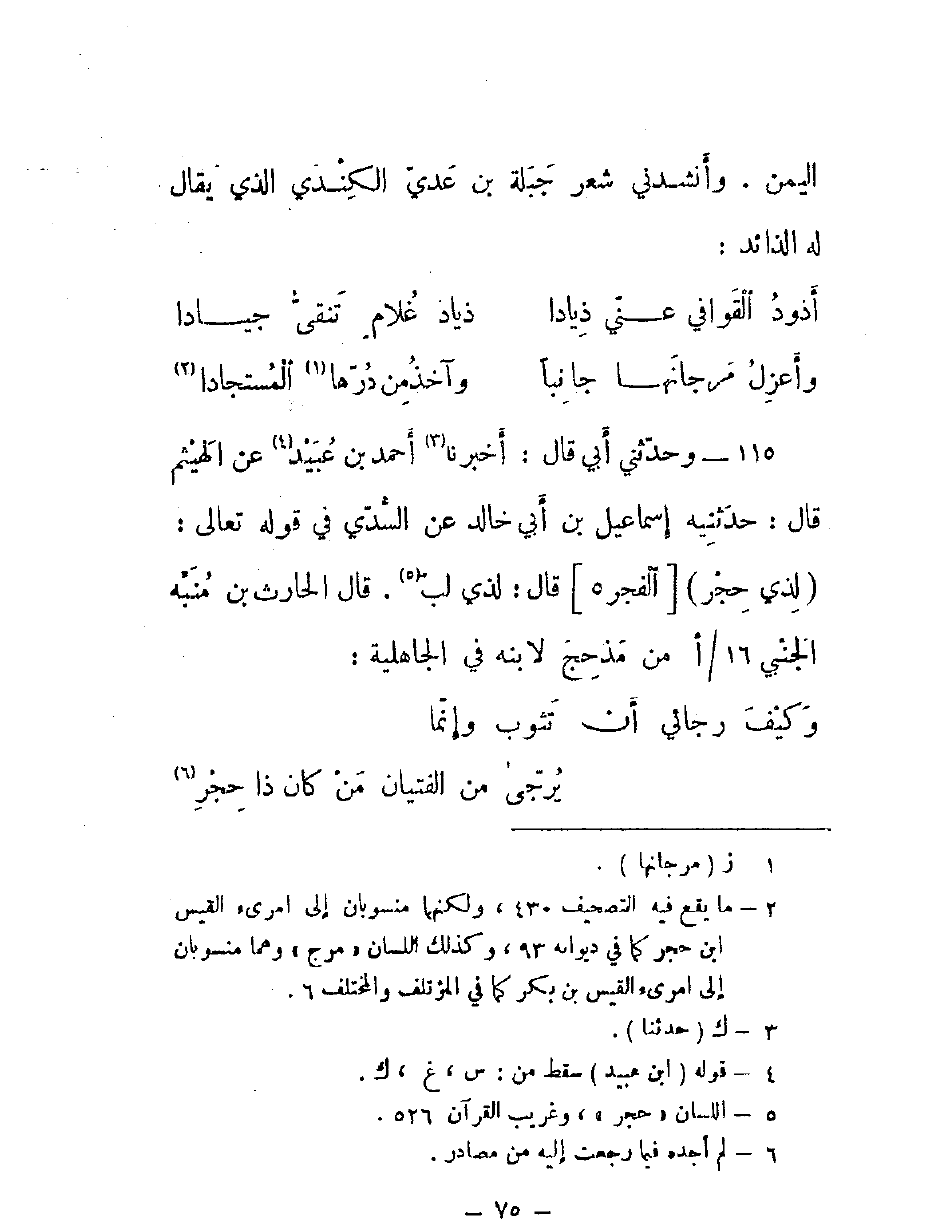 اليمن . وأَنشدني شعر جَبَلة بن عَديّ الكِنْدي الذي يَقال
له الذائد :
أَذودُ ٱلْقَوافي عنّي ذِيادا ذيادَ غُلامٍ تَنقىُّ جيادا
وأَعزِلُ مَرجانَها جانِباً وآخذُمِن دُرّها(١) ٱلْمُستجادا(٢)
١١٥ – وحدّثني أبي قال : أَخبرنا(٣) أَحمد بن عُبَيْد(٤) عن الهَيْثم
قال : حدَثنِيه إسماعيل بن أَبي خالد عن السُّدّي في قوله تعالى :
(لِذي حِجْر) [ ٱلفجر ٥ ] قال : لذي لب(٥) . قال الحارث بن مُنَبّه
الجَنْبي ١٦/أ من مَذحِجَ لابنه في الجاهلية :
وَكَيْفَ رجائي أَن تَثوب وإنّما
يُرتّجىٰ من الفتيان مَنْ كان ذا حِجْرِ(٦)
١ ز ( مرجانها ) .
٢ – ما يقع فيه التصحيف ٤٣٠ ، ولكنهما منسوبان إلى امرىء القيس
ابن حجر كما في ديوانه ٩٣ ، وكذلك اللسان « مرج » وهما منسوبان
إلى امرىء القيس بن بكر كما في المؤتلف والمختلف ٦ .
٣ – ك ( حدثنا ) .
٤ – قوله ( ابن عبيد ) سقط من : س ، غ ، ك .
٥ – اللسان « حجر » ، وغريب القرآن ٥٢٦ .
٦ – لم أجده فيما رجعت إليه من مصادر .
– ٧٥ –